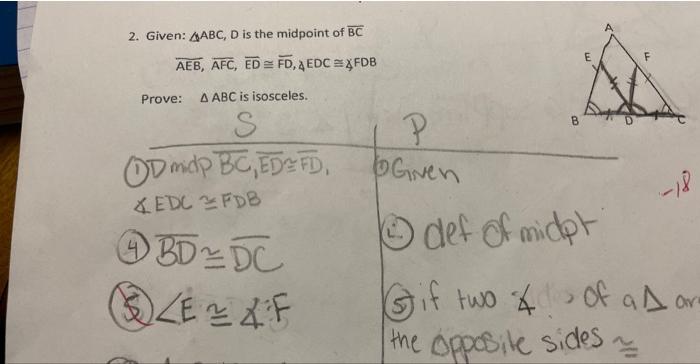 2. Given: △ABC, D is the midpoint of BC
AEB, AFC, ED ≅ FD, ∡EDC ≅ ∡FDB
Prove: △ ABC is isosceles.
A
E F
B D C
S P
① D midp BC, ED ≅ FD, ① Given
∡ EDC ≅ FDB
-18
④ BD ≅ DC def of midpt
⑤ ∠E ≅ ∡F ⑤ if two ∡ of a △ are
the opposite sides ≅